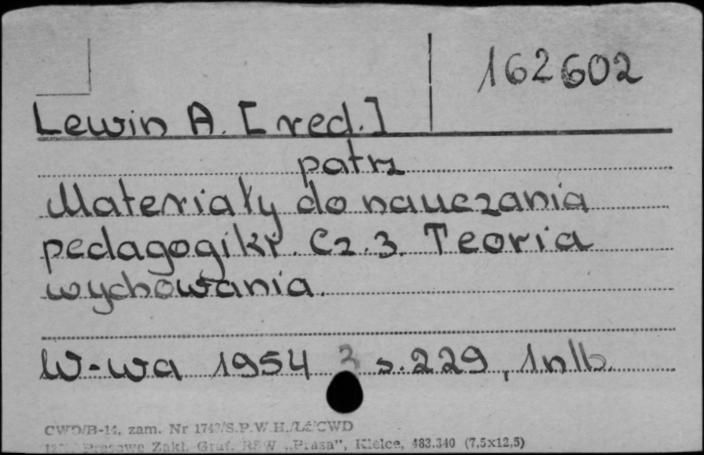 162602
Lewin A. [red.]
patrz
Materiały do nauczania
pedagogiki. Cz. 3. Teoria
wychowania.
W-wa 1954 s. 229, 1 nlb.
CWD/B-14, zam. Nr /S.P.W.H./Łź/CWD
Prasowe Zakł. Graf. RSW „Prasa”, Kielce, 483.340 (7,5x12,5)